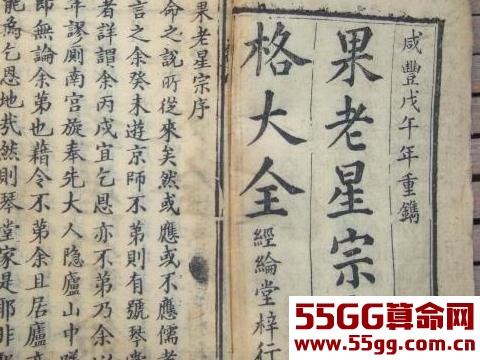 咸豐戊午年重鐫
果老星宗
格大全
經綸堂梓行
果老星宗序
命之說所從來矣然或應或不應儒者
言之余癸未遊京師不第則有號琴堂
者詳謂余丙戌宜乞恩亦不第乃余以
年謬廁南宮旋奉先大人隱廬山中
即無論余弟也藉令不第余且居廬
能為乞恩地哉然則琴堂家是耶非
55GG算命网
www.55gg.com.cn